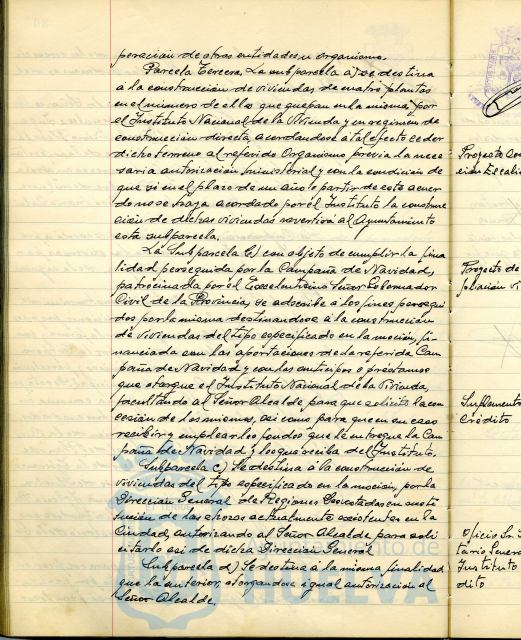 peración de otras entidades u organismo.
Parcela Tercera. La subparcela a) se destina
a la construcción de viviendas de cuatro plantas
en el número de ellas que quepan en la misma, por
el Instituto Nacional de la Vivienda y en regimen de
construcción directa, acordandose a tal efecto ceder
dicho terreno al referido Organismo, previa la nece
saria autorización ministerial y con la condición de
que si en el plazo de un año a partir de este acuer
do no se haya acordado por el Instituto la construc
ción de dichas viviendas revertirá al Ayuntamiento
esta subparcela.
La Subparcela b) con objeto de cumplir la fina
lidad perseguida por la Campaña de Navidad,
patrocinada por el Excelentísimo Señor Gobernador
Civil de la Provincia, se adscribe a los fines persegui
dos por la misma destinandose a la construcción
de viviendas del tipo especificado en la moción, fi-
nanciada con las aportaciones de la referida Cam
paña de Navidad y con los anticipos o préstamos
que otorgue el Instituto Nacional de la Vivienda,
facultando al Señor Alcalde para que solicite la con
cesión de los mismos, así como para que en su caso
recibir y emplear los fondos que le entregue la Cam
paña de Navidad y los que reciba del Instituto.
Subparcela c) Se destina a la construcción de
viviendas del tipo especificado en la moción, por la
Dirección General de Regiones Devastadas en susti
tución de las chozas actualmente existentes en la
Ciudad, autorizando al Señor Alcalde para soli
citarlo así de dicha Dirección General.
Subparcela d) Se destina a la misma finalidad
que la anterior, otorgandose igual autorización al
Señor Alcalde.
Proyecto
Proyecto de
Suplemento
Crédito
Oficio Sr.
Instituto
dito
Ayuntamiento de
HUELVA